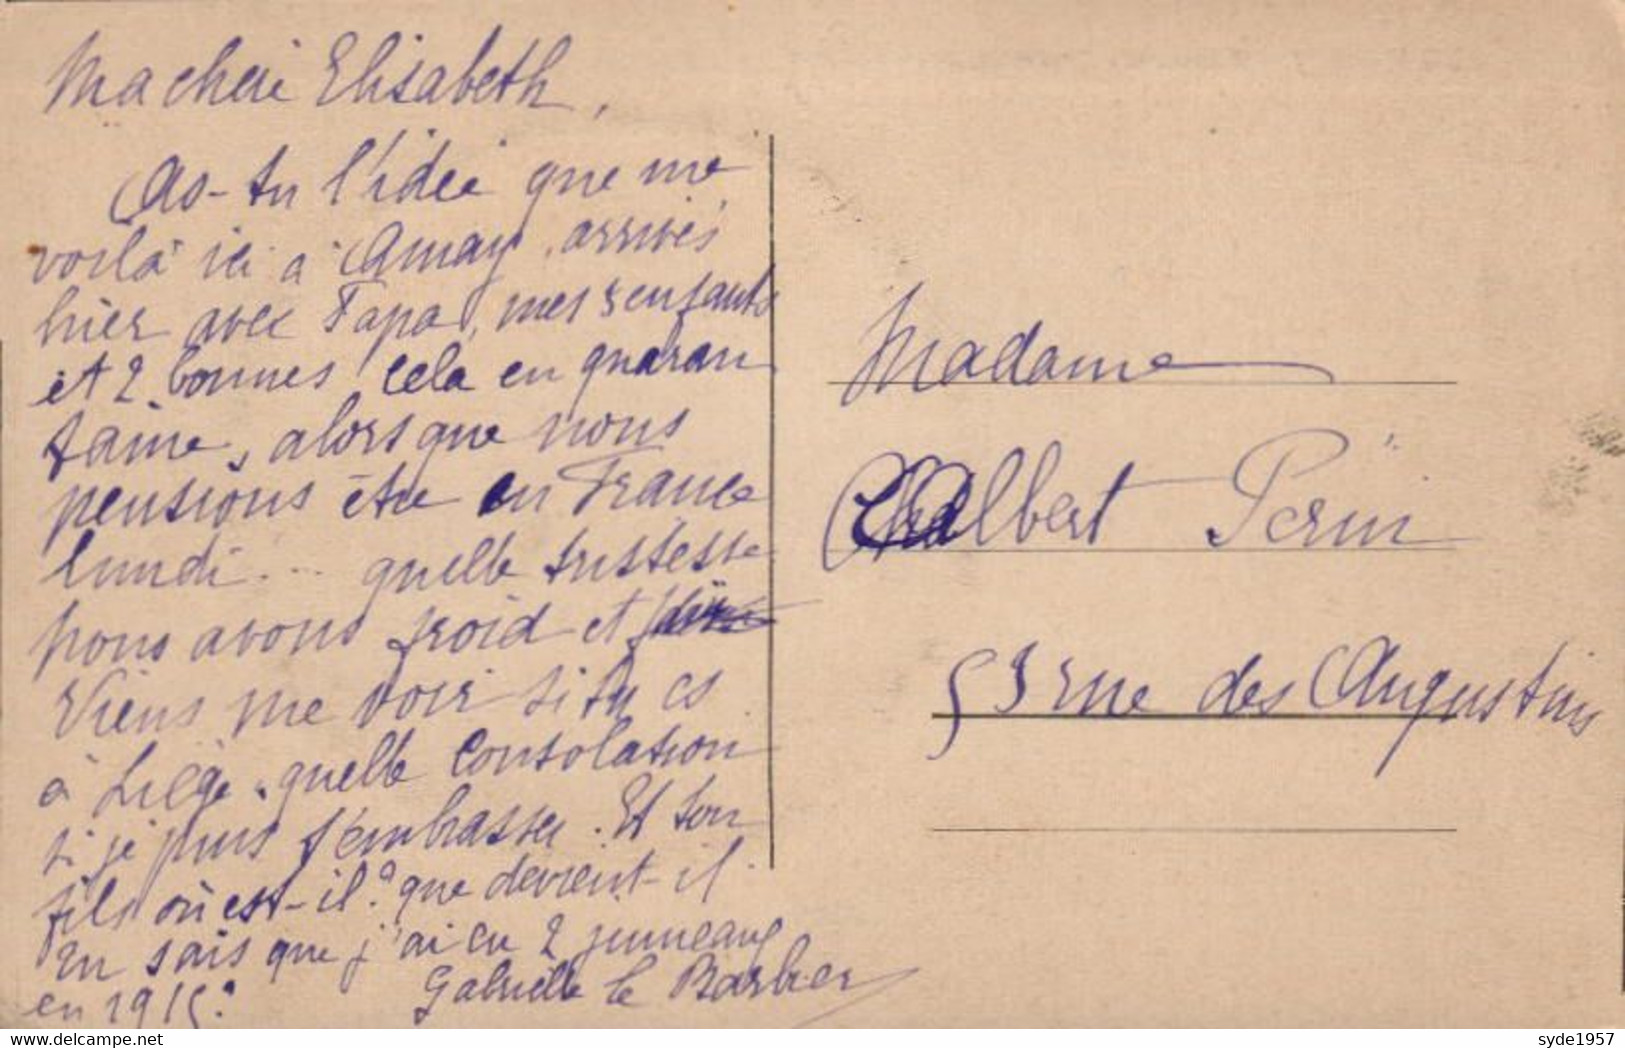 Ma chère Elisabeth,
As-tu l'idée que me
voilà ici à Amay, arrivés
hier avec Papa, mes enfants
et 2 bonnes, cela en quaran
taine, alors que nous
pensions être en France
lundi ... quelle tristesse
nous avons froid et
Viens me voir si tu es
à Liège, quelle consolation
si je puis t'embrasser. Et ton
fils où est-il? que devient-il.
Tu sais que j'ai eu 2 jumeaux
en 1915?
Gabrielle le Barbier
Madame
Albert Perin
53 rue des Augustins
syde1957